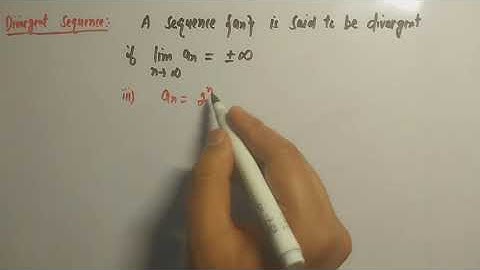 Divergent Sequence:- A sequence {an} is said to be divergent
if lim n→∞ an = ±∞
iii) an = 2^n